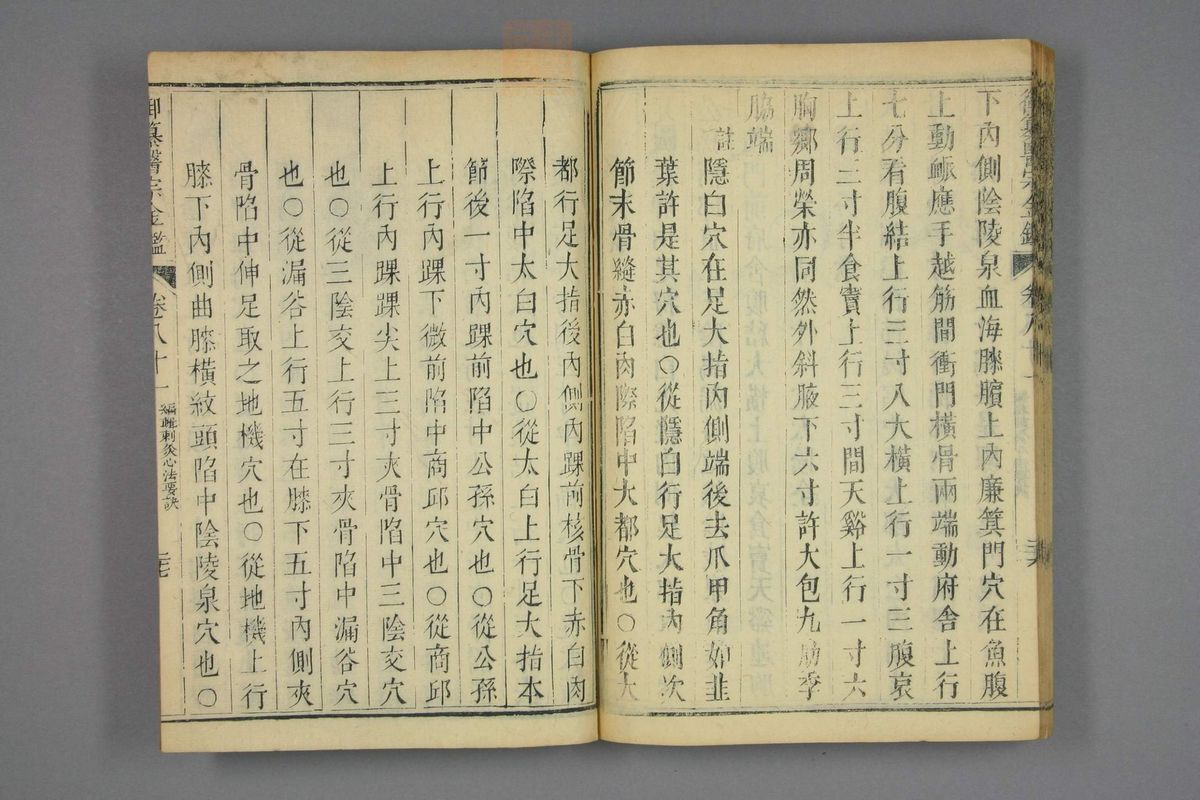 下內側陰陵泉血海膝臏上內廉箕門穴在魚腹
上動𧖴應手越筋間衝門橫骨兩端動府舍上行
七分看腹結上行三寸八大橫上行一寸三腹哀
上行三寸半食竇上行三寸間天谿上行一寸六
胸鄉周榮亦同然外斜腋下六寸許大包九肋季
脇端
註隱白穴在足大指內側端後去爪甲角如韭
葉許是其穴也〇從隱白行足大指內側次
節末骨縫赤白肉際陷中大都穴也〇從大
都行足大指後內側內踝前核骨下赤白肉
際陷中太白穴也〇從太白上行足大指本
節後一寸內踝前陷中公孫穴也〇從公孫
上行內踝下微前陷中商邱穴也〇從商邱
上行內踝踝尖上三寸夾骨陷中三陰交穴
也〇從三陰交上行三寸夾骨陷中漏谷穴
也〇從漏谷上行五寸在膝下五寸內側夾
骨陷中伸足取之地機穴也〇從地機上行
膝下內側曲膝橫紋頭陷中陰陵泉穴也〇
御纂醫宗金鑑 卷八十一 編輯刺灸心法要訣